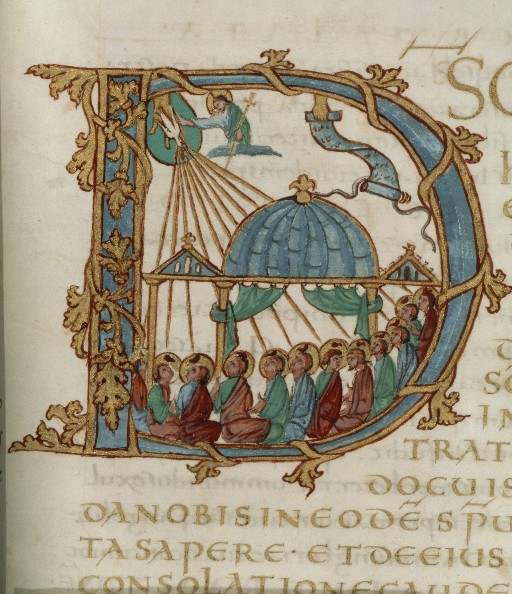 D
TRAT
DOCUIS
DANOBISINEODĒSPŪ
TASAPERE·ETDEEIUS
CONSOLATIONEGAUDE